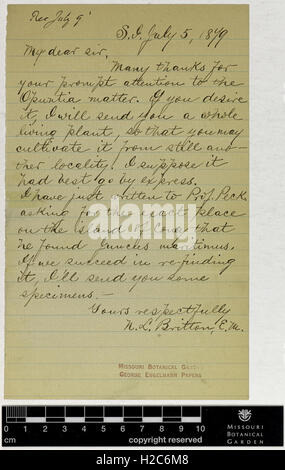 Rec July 9
S. I. July 5, 1879
My dear sir,
Many thanks for
your prompt attention to the
Opuntia matter. If you desire
it, I will send you a whole
living plant, so that you may
cultivate it from still ano-
ther locality. I suppose it
had best go by express.
I have just written to Prof. Peck
asking for the exact place
on the sland of Cone that
he found Juncus maritimus.
If we succeed in re-finding
it, I'll send you some
specimens.—
Yours respectfully
N. L. Britton, E. M.
MISSOURI BOTANICAL GARDEN
GEORGE ENGELMANN PAPERS
alamy
0 1 2 3 4 5 6 7 8 9 10
cm copyright reserved
MISSOURI
BOTANICAL
GARDEN
alamy stock photo
H2C6M8